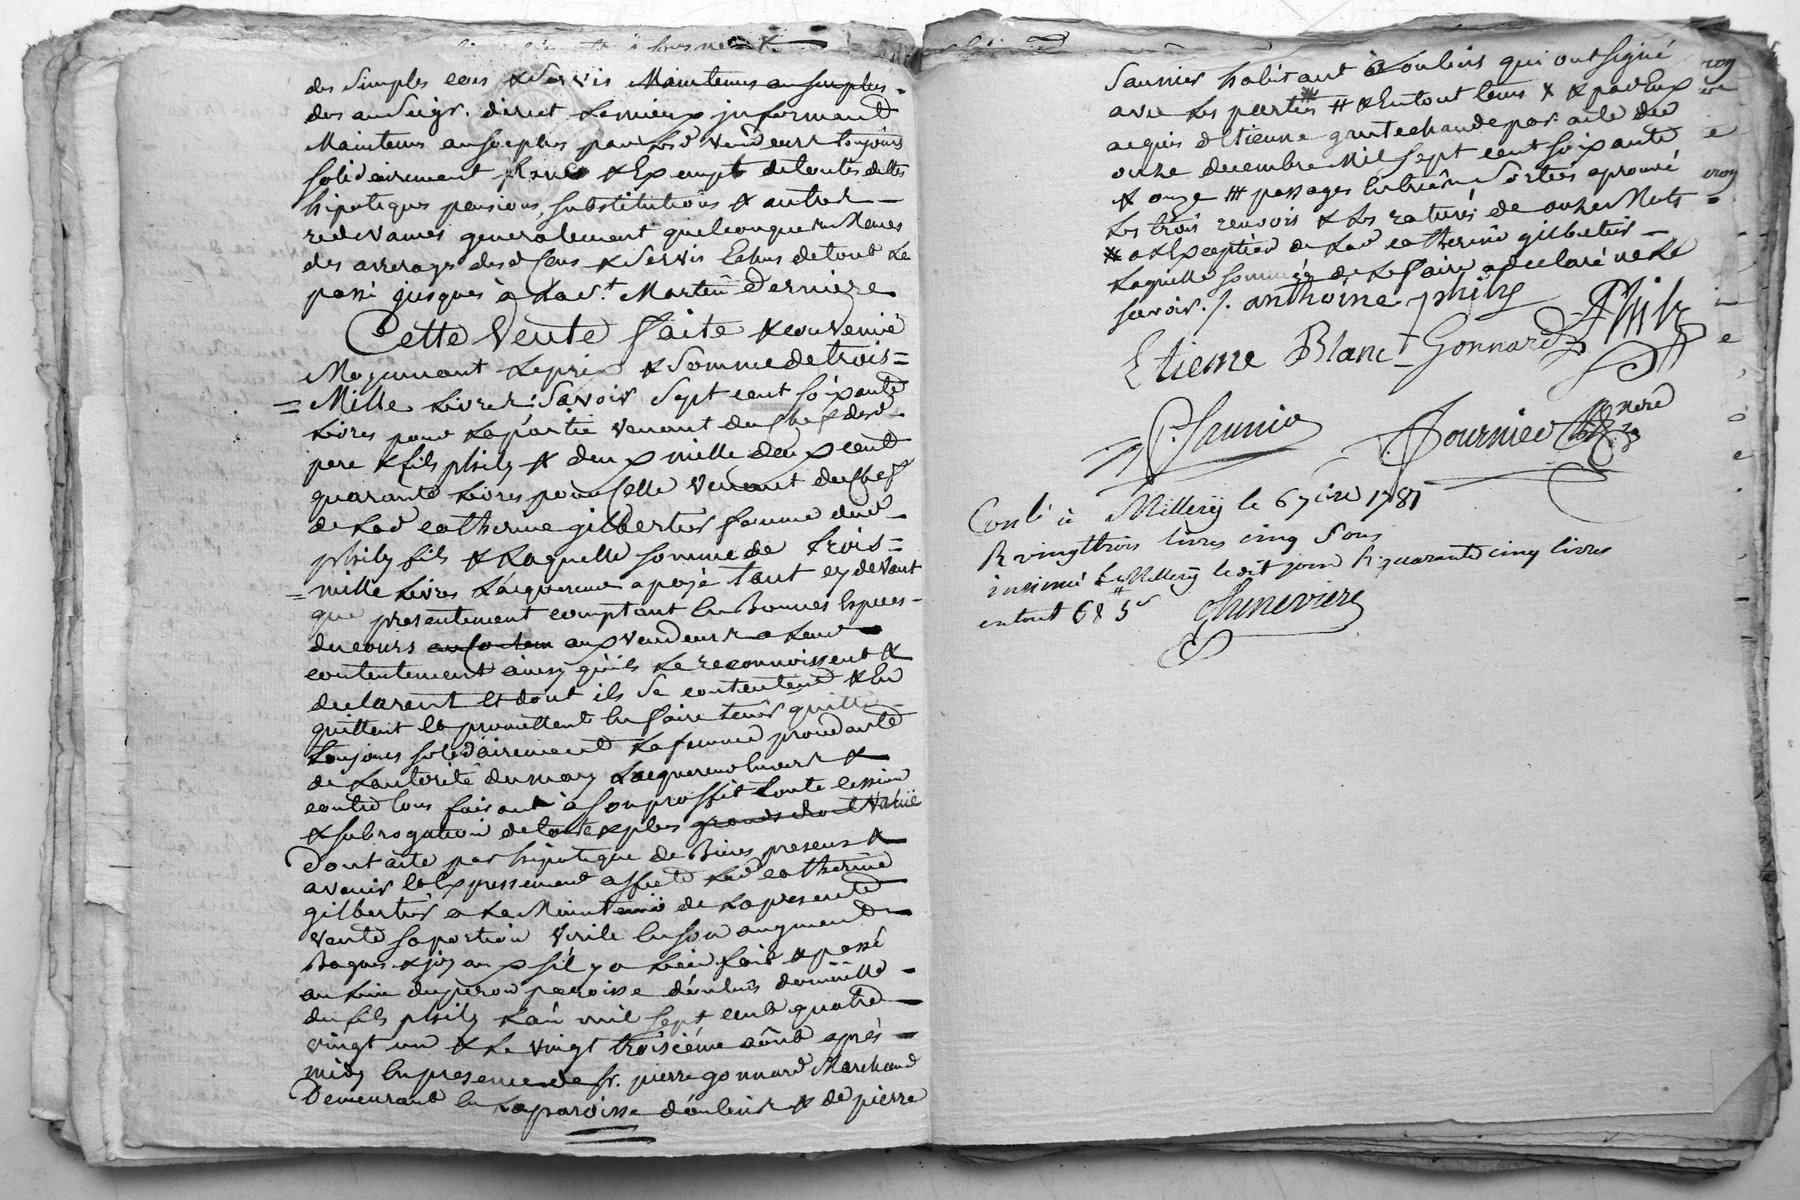 des simples cens & servis Maintenus au surplus
des au Seigr. direct le mieux informant
Maintenus au surplus par lesd vendeurs toujours
solidairement francs & Exempts de toutes dettes
hipoteques pensions, substitutions & autres
redevances generalement quelconques mêmes
des arrerages desd Cens & servis Echus de tout le
passé jusques à la st. Martin Derniere
Cette Vente faite & convenue
Moyennant le prix & somme de trois =
= Mille livres: Savoir sept cent soixante
livres pour la portie venant du chef desd
pere & fils phily & deux mille deux cent
quarante livres pour celle venant du chef
de lad catherine gilbertier femme dud
phily fils & laquelle somme de trois =
= mille livres l'acquereur a payé tant cy devant
que presentement comptant en Bonnes Especes
du cours aux vendeurs a leur
contentement ainsy qu'ils le reconnoissent &
declarent et dont ils se contentent & En
quittent et promettent en faire tenir quitte
toujours solidairement la femme procedante
de l'autorité du mary l'acquereur envers &
contre tous faisant à son proffit toute cession
& subrogation de toutes plus grands droit value
Dont acte par hipoteque de Biens presens &
avenir et Expressement affecté lad catherine
gilbertier a la Maintenue de la presente
vente sa portion virile en son augment
Bagues & joyaux s'il y a lieu fait & passé
au lieu du peron paroisse d'oulins domicille
du fils phily l'an mil sept cent quatre
vingt un & le vingt troisieme aôut après
midy En presence de sr. pierre gonnard Marchand
Demeurant en la paroisse d'oulins & de pierre
Saunier habitant à oulins qui ont signé
avec les parties # & En tout leurs & par Eux
acquis d'Etienne par acte du
onze decembre Mil sept cent soixante
& onze ### passages Entrées sorties aprouvé
les trois renvois & les ratures de onze Mots
* a l'Exception de lad catherine gilbertier
laquelle sommée de le faire a declaré ne le
savoir ./. anthoine phily Phily
Etienne Blanc Gonnard
P. Saunier Fournier Nore
Conlé à Millery le 6 7bre 1781
R vingt trois livres cinq sous
insinué à Millery ledit jour R quarante cinq livres
en tout 68# 5s Cheneviere